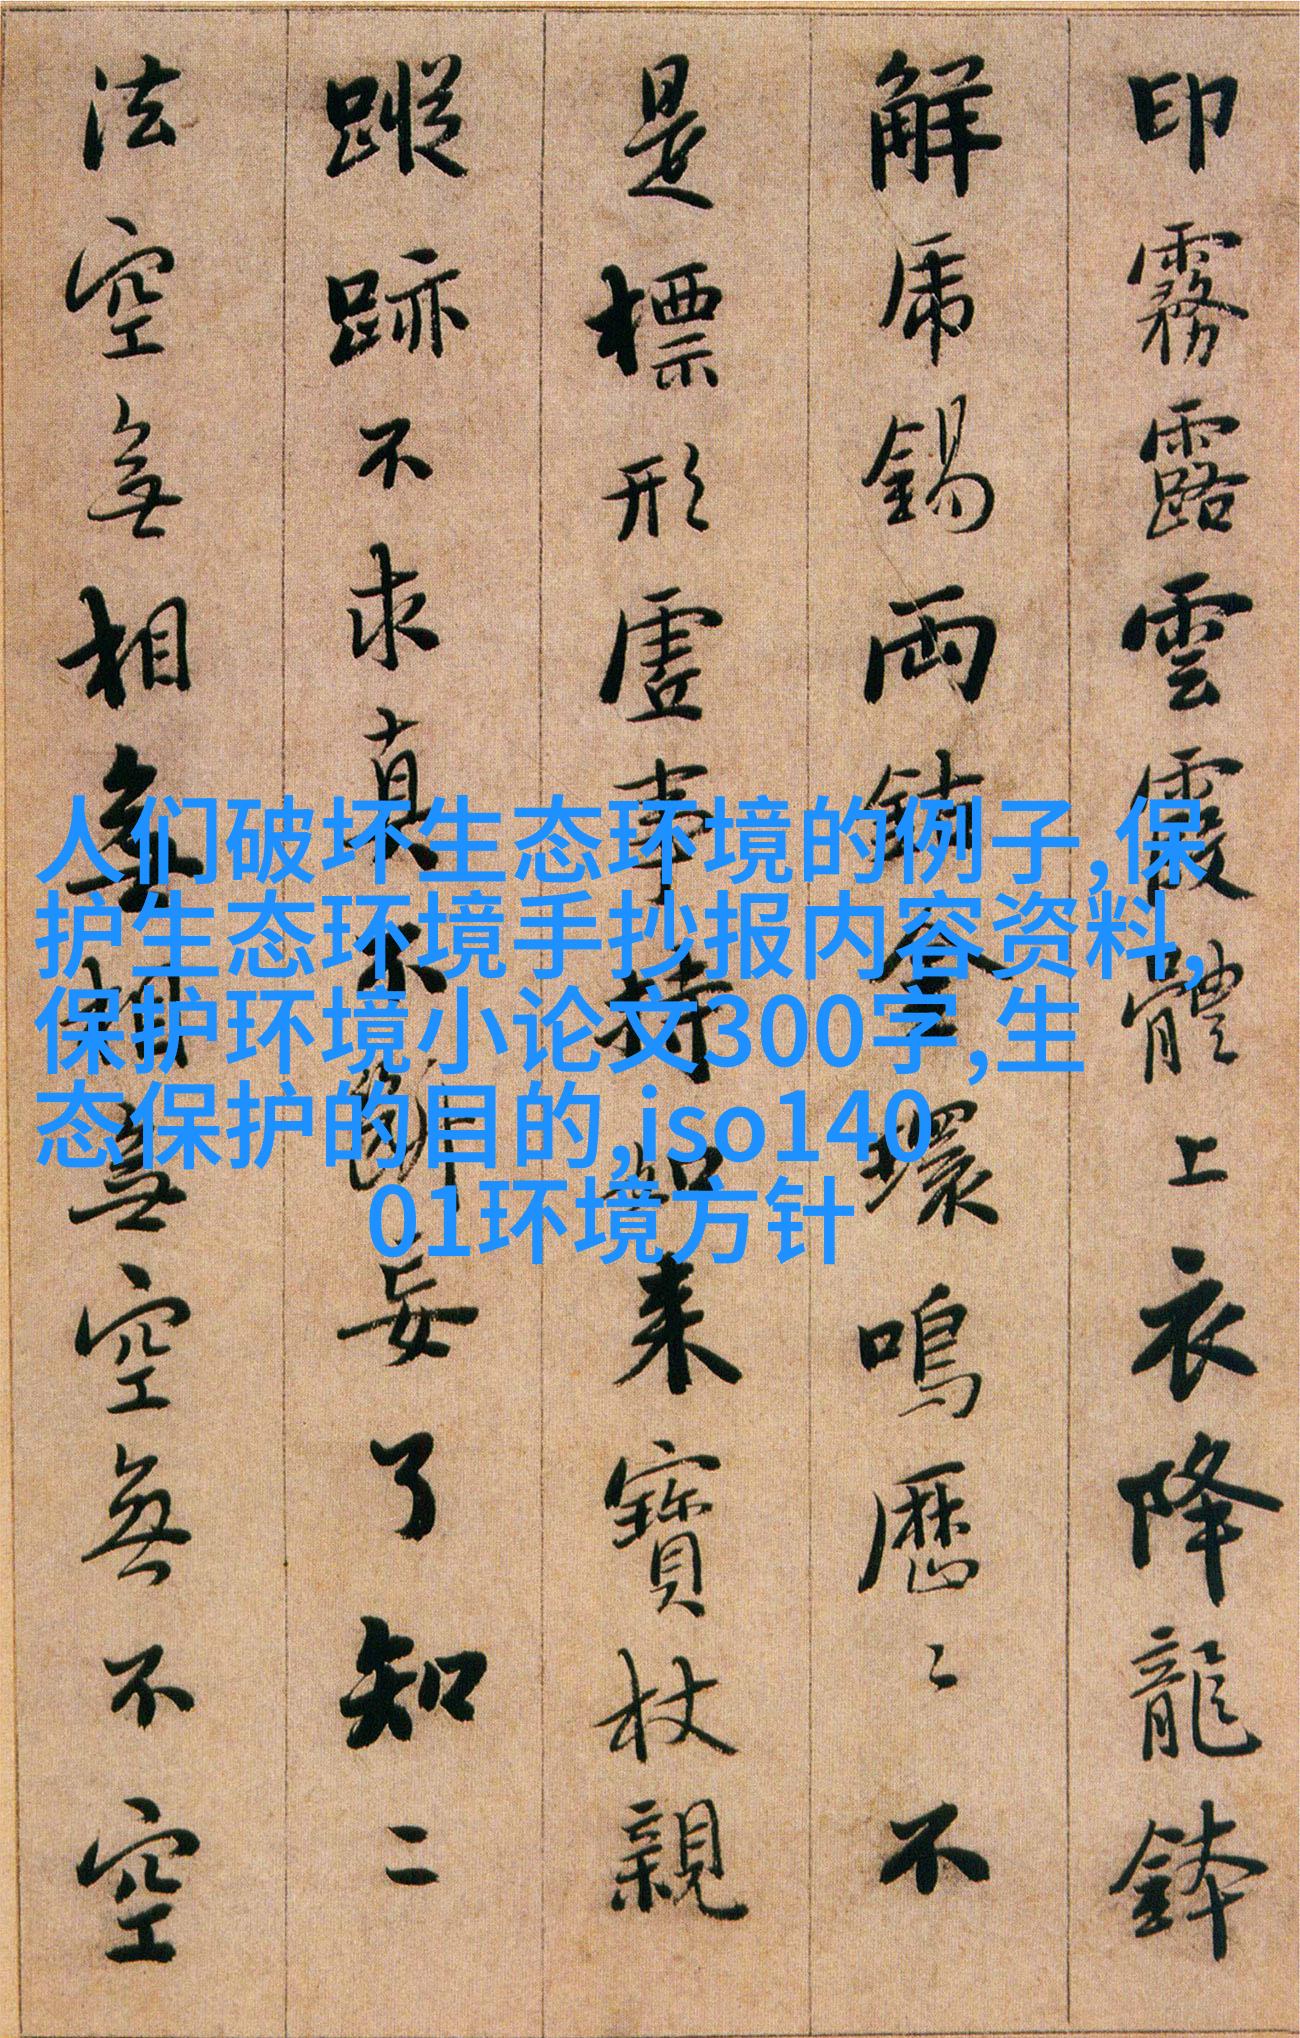 印霧露雲霞體上衣降龍鉢
解虎錫兩鈷金環鳴歷〻不
是標形虛事持如来寶杖親
蹤跡不求真不斷妄了知二
法空無相無相無空無不空
人们破坏生态环境的例子,保
护生态环境手抄报内容资料,
保护环境小论文300字,生
态保护的目的,iso140
01环境方针